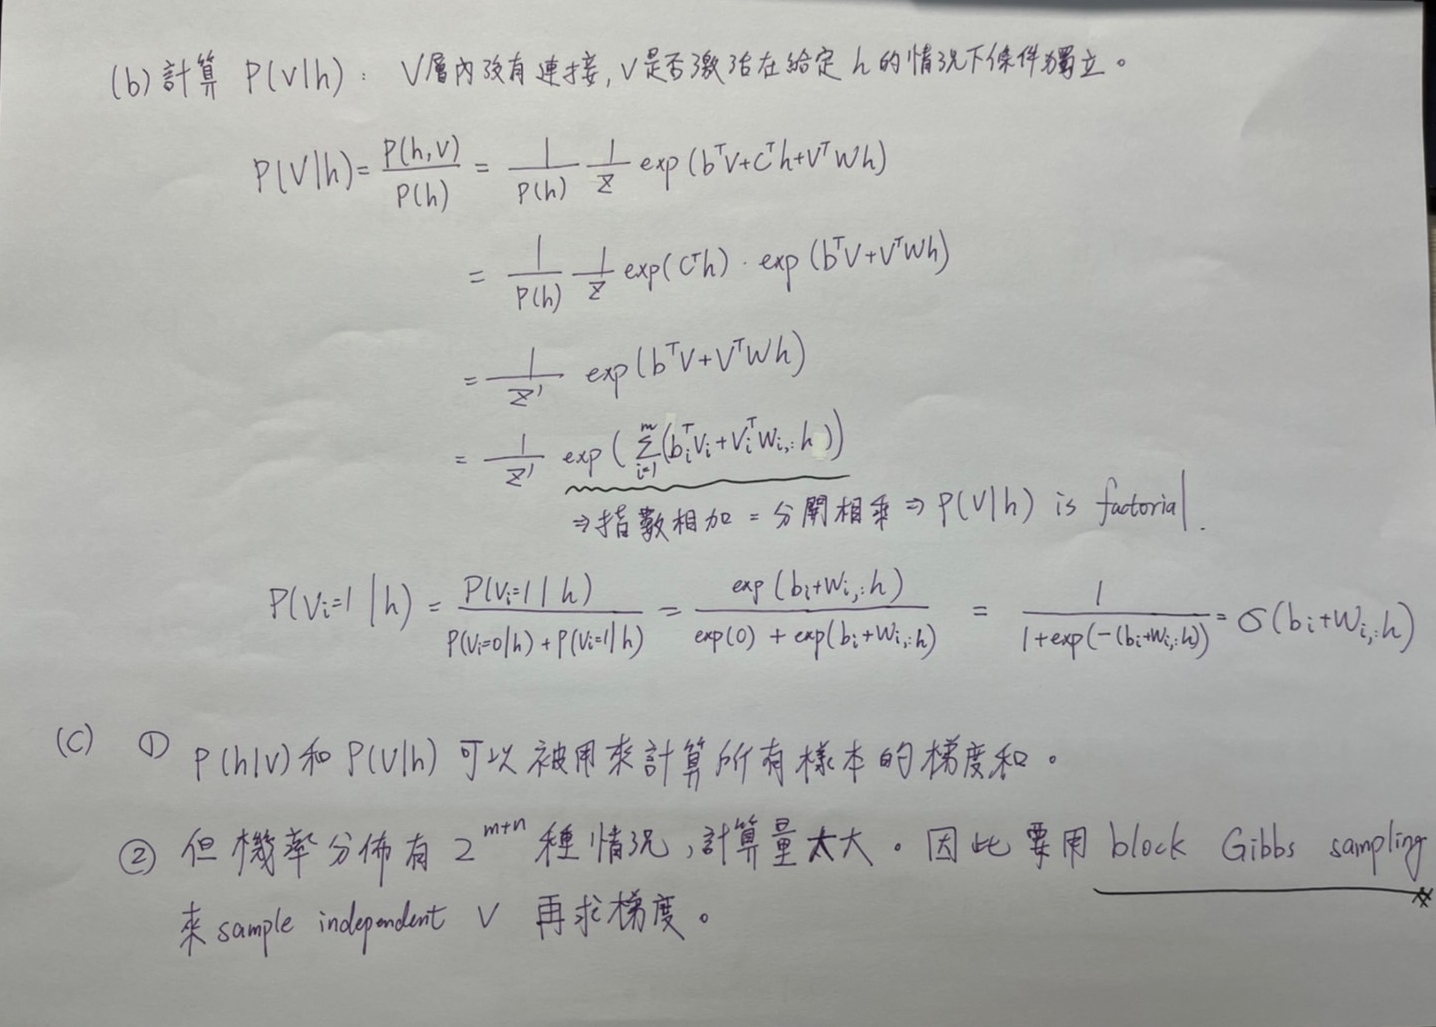 (b) 計算 P(V|h): V層內沒有連接, V是否激活在給定 h 的情況下條件獨立。
P(V|h) = P(h,V)/P(h) = 1/P(h) 1/Z exp(bᵀV+Cᵀh+VᵀWh)
= 1/P(h) 1/Z exp(Cᵀh) · exp(bᵀV+VᵀWh)
= 1/Z' exp(bᵀV+VᵀWh)
= 1/Z' exp(∑_{i=1}^{m}(b_iᵀV_i+V_iᵀW_{i,:}h))
⇒指數相加 = 分開相乘 ⇒ P(V|h) is factorial.
P(V_i=1|h) = P(V_i=1|h)/(P(V_i=0|h)+P(V_i=1|h)) = exp(b_i+W_{i,:}h)/(exp(0)+exp(b_i+W_{i,:}h)) = 1/(1+exp(-(b_i+W_{i,:}h))) = σ(b_i+W_{i,:}h)
(C) ① P(h|v)和P(V|h) 可以被用來計算所有樣本的梯度和。
② 但機率分佈有 2^{m+n} 種情況, 計算量太大。因此要用 block Gibbs sampling
來 sample independent V 再求梯度。